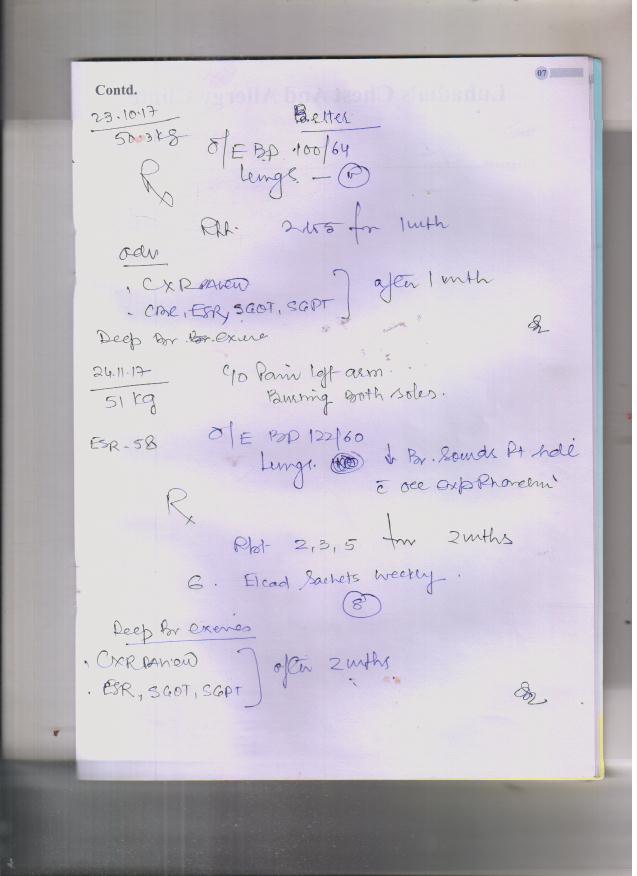 07
Contd.
23.10.17
50.3kg
Better
O/E BP 100/64
Lungs – N
Rx
Rpt. 2 to 5 for 1mth
adv
. CXR PA view
. CBC, ESR, SGOT, SGPT
after 1 mth
Deep Br. Br. exerc
24.11.17
51 kg
C/o Pain left arm.
Burning both soles.
ESR-58
O/E BP 122/60
Lungs. ↓ Br. Sounds Rt side
c̄ occ exp Rhonchi
Rx
Rpt 2, 3, 5 for 2mths
6. Elcad Sachets weekly.
8
Deep Br exercises
. CXR PA view
. ESR, SGOT, SGPT
after 2 mths